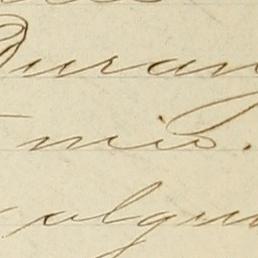 Duran
mio.
algun